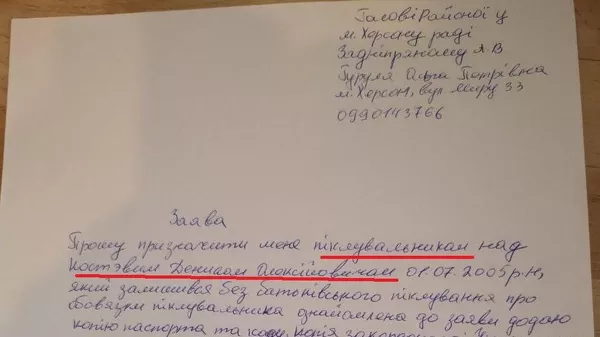 Голові Районої у
м. Херсону раді
Задніпряному А.В
Гуруля Ольга Петрівна
м. Херсон, вул Миру 33
0990143766
Заява
Прошу призначити мене піклувальникам над
Костэвим Денисом Олексійовичам 01.07.2005р.н,
який залишився без батьківського піклування про
обовязки піклувальника ознайомлена до заяви додаю
копію паспорта та коду, копія